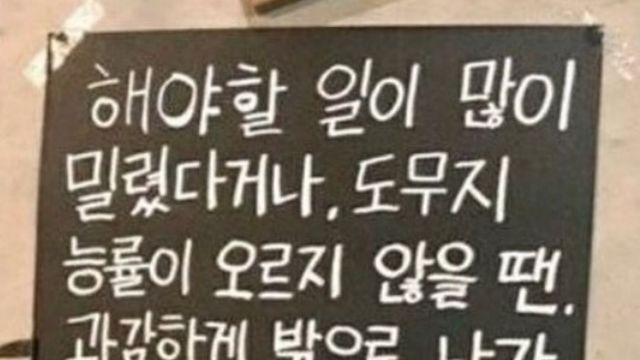 해야할 일이 많이
밀렸다거나, 도무지
능률이 오르지 않을 땐.
과감하게 밖으로 나가